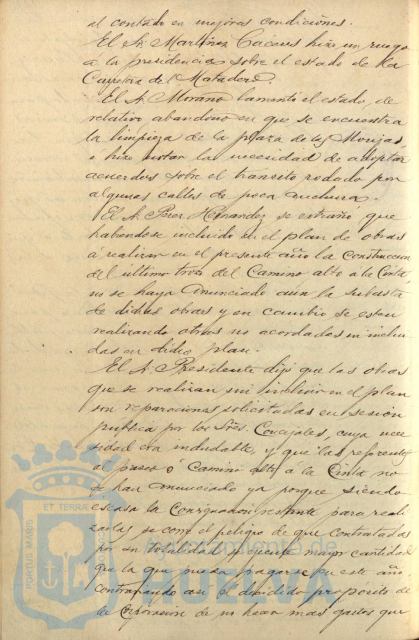 al contado en mejores condiciones.
El Sr. Martínez Cáceres hizo un ruego
a la presidencia sobre el estado de la
Carretera del Matadero.
El Sr. Moraño lamentó el estado de
relativo abandono en que se encuentra
la limpieza de la plaza de las Monjas
e hizo notar la necesidad de adoptar
acuerdos sobre el tránsito rodado por
algunas calles de poca anchura.
El Sr. Hernandez se extrañó que
habiendose incluido en el plan de obras
a realizar en el presente año la construccion
del ultimo trozo del Camino alto a la Cinta,
no se haya anunciado aún la subasta
de dichas obras y en cambio se esten
realizando otras no acordadas ni inclui-
das en dicho plan.
El Sr. Presidente dijo que las obras
que se realizan sin incluir en el plan
son reparaciones solicitadas en sesión
publica por los Sres. Concejales, cuya nece-
sidad era indudable, y que las referentes
al paseo o Camino alto a la Cinta no
se han anunciado ya porque siendo
escasa la consignación restante para reali-
zarlas se corre el peligro de que contratadas
por su totalidad se ejecute mayor cantidad
que la que pueda pagarse en este año
contrariando así el decidido propósito de
la Corporacion de no hacer mas gastos que
PORTUS MARIS
ET TERRAE
Ayuntamiento de
HUELVA